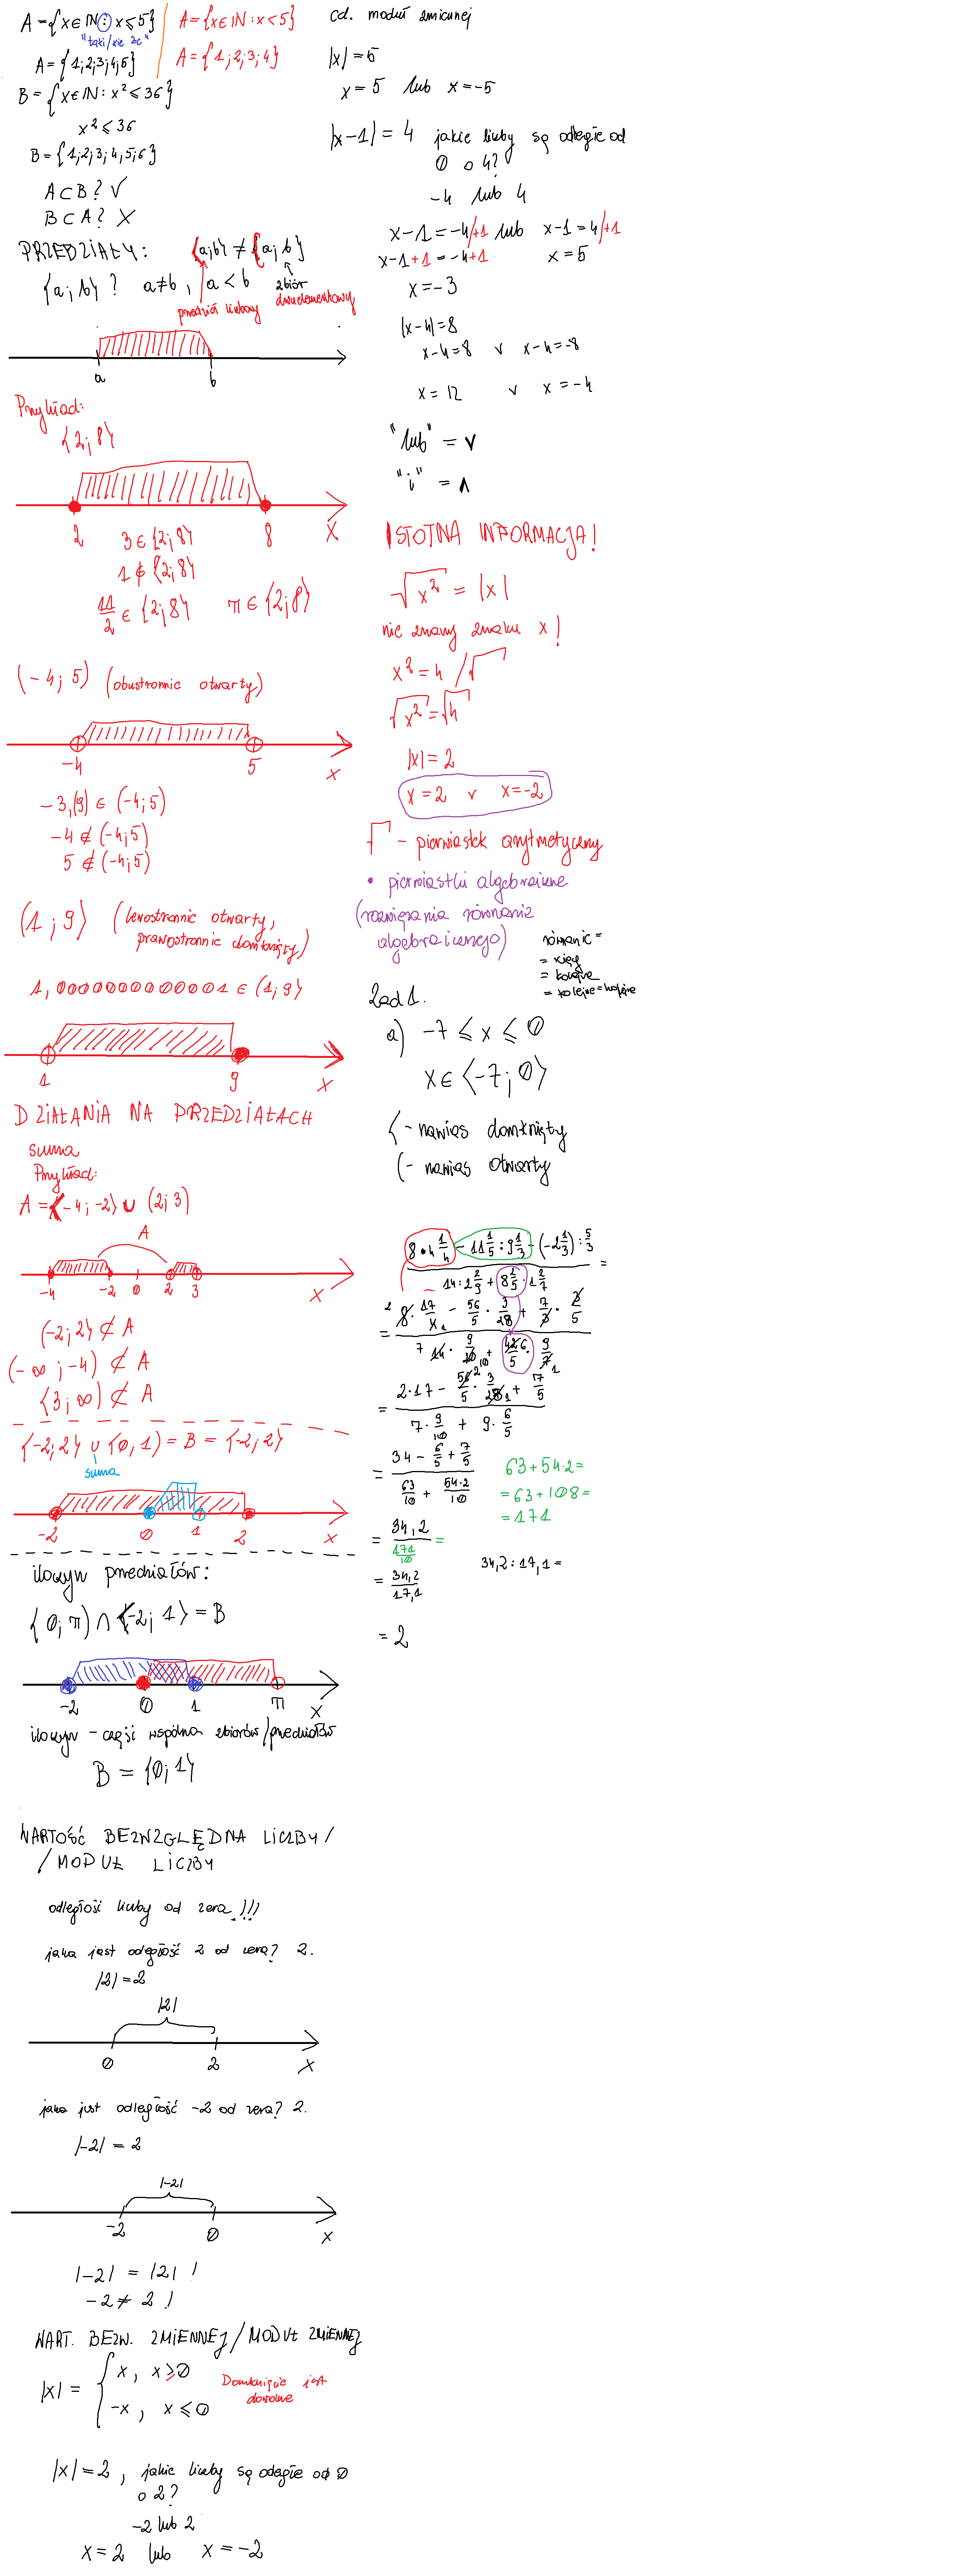 A = {x ∈ ℕ : x ⩽ 5}
"taki/że że"
A = {1; 2; 3; 4; 5}
A = {x ∈ ℕ : x < 5}
A = {1; 2; 3; 4}
B = {x ∈ ℕ : x² ⩽ 36}
x² ⩽ 36
B = {1; 2; 3; 4; 5; 6}
A ⊂ B? ✓
B ⊂ A? ✗
PRZEDZIAŁY:
⟨a; b⟩ ≠ {a; b}
⟨a; b⟩ ? a ≠ b, a < b
zbiór
dwuelementowy
przedział liczbowy
a b
Przykład:
⟨2; 8⟩
2 8 x
3 ∈ ⟨2; 8⟩
1 ∉ ⟨2; 8⟩
11/2 ∈ ⟨2; 8⟩ π ∈ ⟨2; 8⟩
(-4; 5) (obustronnie otwarty)
-4 5 x
-3,(9) ∈ (-4; 5)
-4 ∉ (-4; 5)
5 ∉ (-4; 5)
(1; 9⟩ (lewostronnie otwarty,
prawostronnie domknięty)
1,0000000000001 ∈ (1; 9⟩
1 9 x
DZIAŁANIA NA PRZEDZIAŁACH
suma
Przykład:
A = ⟨-4; -2⟩ ∪ (2; 3)
A
-4 -2 0 2 3 x
(-2; 2⟩ ⊄ A
(-∞; -4) ⊄ A
⟨3; ∞) ⊄ A
⟨-2; 2⟩ ∪ ⟨0, 1) = B = ⟨-2; 2⟩
suma
-2 0 1 2 x
iloczyn przedziałów:
⟨0; π) ∩ ⟨-2; 1⟩ = B
-2 0 1 π x
iloczyn - część wspólna zbiorów/przedziałów
B = ⟨0; 1⟩
WARTOŚĆ BEZWZGLĘDNA LICZBY/
/MODUŁ LICZBY
odległość liczby od zera!!!
jaka jest odległość 2 od zera? 2.
|2| = 2
|2|
0 2 x
jaka jest odległość -2 od zera? 2.
|-2| = 2
|-2|
-2 0 x
|-2| = |2| !
-2 ≠ 2 !
WART. BEZW. ZMIENNEJ/MODUŁ ZMIENNEJ
|x| = { x, x ⩾ 0
-x, x ⩽ 0
Domknięcie jest
dowolne
|x| = 2, jakie liczby są odległe od 0
o 2?
-2 lub 2
x = 2 lub x = -2
cd. moduł zmiennej
|x| = 5
x = 5 lub x = -5
|x-1| = 4 jakie liczby są odległe od
0 o 4?
-4 lub 4
x-1 = -4 /+1 lub x-1 = 4 /+1
x-1+1 = -4+1 x = 5
x = -3
|x-4| = 8
x-4 = 8 ∨ x-4 = -8
x = 12 ∨ x = -4
"lub" = ∨
"i" = ∧
ISTOTNA INFORMACJA!
√x² = |x|
nie znamy znaku x!
x² = 4 /√
√x² = √4
|x| = 2
x = 2 ∨ x = -2
√ - pierwiastek arytmetyczny
• pierwiastki algebraiczne
(rozwiązania równania
algebraicznego)
równanie =
= więcej
= kolejne
= kolejne = kolejne
Zad 1.
a) -7 ⩽ x ⩽ 0
x ∈ ⟨-7; 0⟩
⟨ - nawias domknięty
( - nawias otwarty
8 · 4 1/4 - 11 1/5 : 9 1/3 - (-2 1/3) : 5/3 =
14 : 2 2/9 + 8 2/5 · 1 2/7
= 2 8 · 17/4 - 56/5 · 3/28 + 7/3 · 3/5
7 14 · 9/20 10 + 42 6/5 · 9/7 1
= 2·17 - 56 2/5 · 3/28 1 + 7/5
7 · 9/10 + 9 · 6/5
= 34 - 6/5 + 7/5
63/10 + 54·2/10
63 + 54·2 =
= 63 + 108 =
= 171
= 34,2 / 171/10 =
= 34,2 / 17,1
34,2 : 17,1 =
= 2